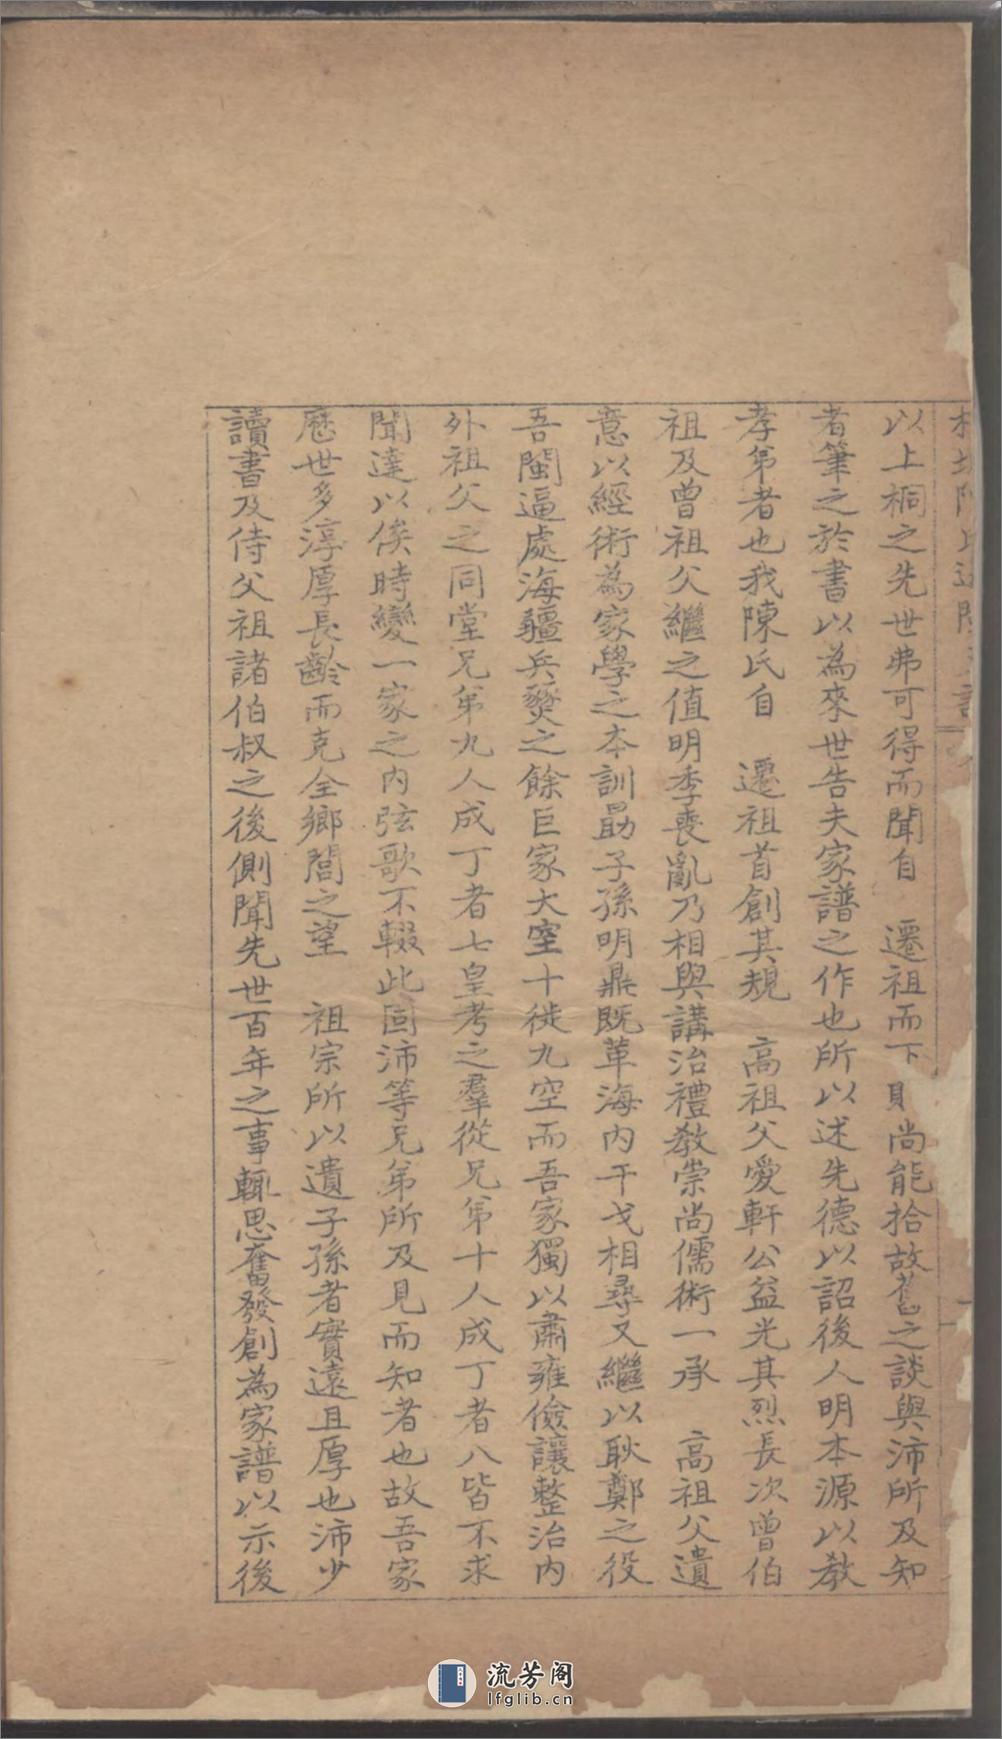 以上桐之先世弗可得而聞自 遷祖而下 尚能拾故舊之談與沛所及知
者筆之於書以為來世告夫家譜之作也所以述先德以詔後人明本源以教
孝弟者也我陳氏自 遷祖首創其規 高祖父愛軒公益光其烈長次曾伯
祖及曾祖父繼之值明季喪亂乃相與講治禮教崇尚儒術一承 高祖父遺
意以經術為家學之本訓勗子孫明鼎既革海內干戈相尋又繼以耿鄭之役
吾閩逼處海疆兵燹之餘巨家大室十徙九空而吾家獨以肅雍儉讓整治內
外祖父之同堂兄弟九人成丁者七皇考之羣從兄弟十人成丁者八皆不求
聞達以俟時變一家之內弦歌不輟此固沛等兄弟所及見而知者也故吾家
歷世多淳厚長齡而克全鄉閭之望 祖宗所以遺子孫者實遠且厚也沛少
讀書及侍父祖諸伯叔之後側聞先世百年之事輒思奮發創為家譜以示後
流芳阁
lfglib.cn